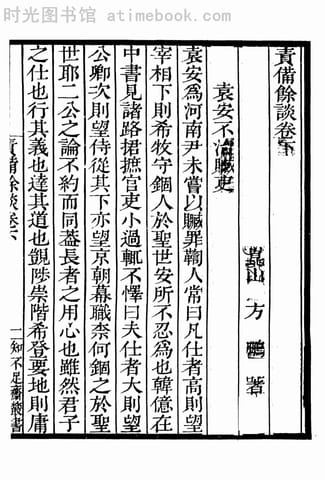 时光图书馆 - atimebook.com
責備餘談卷下
崑山 方 鵬 著
袁安不治贓吏
袁安爲河南尹未嘗以贓罪鞫人常曰凡仕者高則望
宰相下則希牧守錮人於聖世安所不忍爲也韓億在
中書見諸路捃摭官吏小過輒不懌曰夫仕者大則望
公卿次則望侍從其下亦望京朝幕職柰何錮之於聖
世耶二公之論不約而同葢長者之用心也雖然君子
之仕也行其義也達其道也覬陟崇階希登要地則庸
責備餘談卷下
一知不足齋叢書
时光图书馆 - atimebook.com